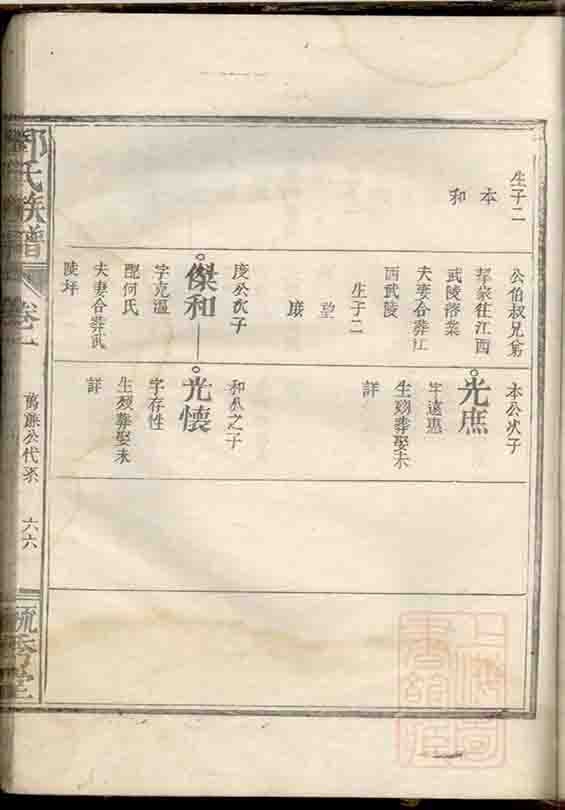 生子二
本
和
公伯叔兄弟
挈家往江西
武陵落業
夫妻合葬江
西武陵
生子二
望
庶
度公次子
傑和
字克溫
配何氏
夫妻合葬武
陵坪
本公次子
光庶
字遠惠
生歿葬娶未
詳
和公之子
光懷
字存性
生歿葬娶未
詳
氏族譜
卷一
萬
公代系
六六
毓秀堂